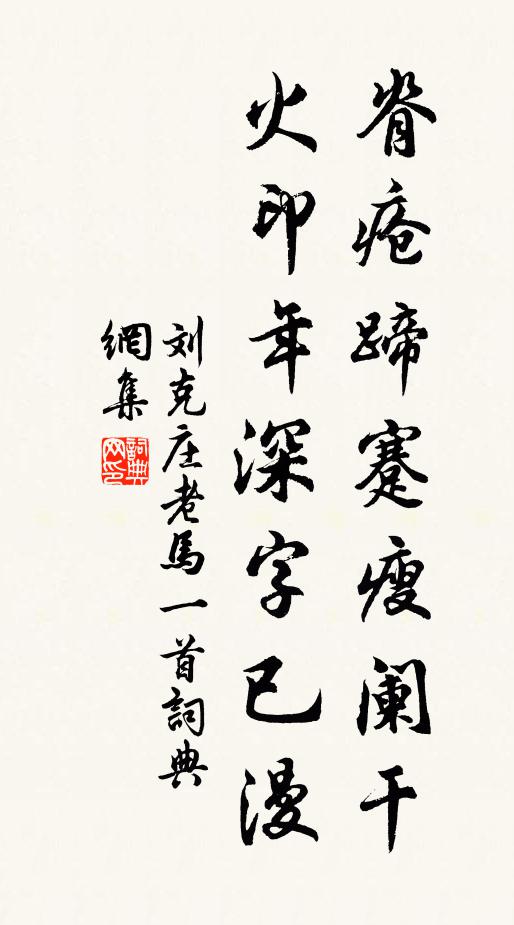 脊疮蹄蹇瘦阑干
火印年深字已漫
刘克庄老馬一首詞典
網集
詞典網印